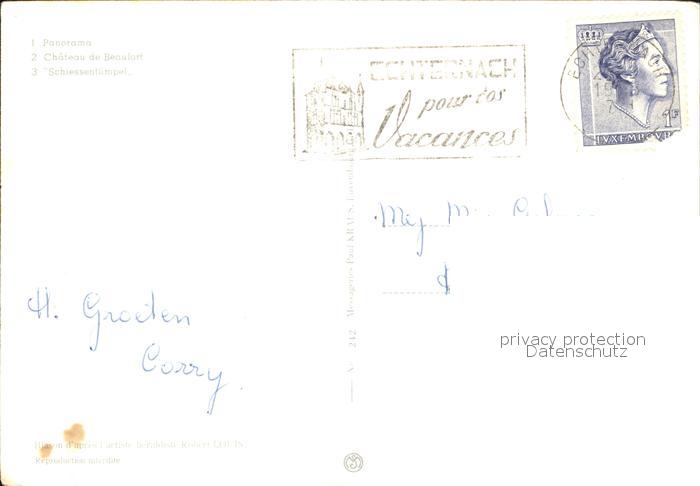 1 Panorama
2 Château de Beaufort
3 "Schiessentümpel„
ECHTERNACH
pour vos
Vacances
1F
LVXEMBOVRG
Mej
H. Groeten
Corry.
242 Messageries Paul KRAUS, Luxembourg
privacy protection
Datenschutz
Blason d'après l'artiste héraldiste Robert LOUIS.
Reproduction interdite